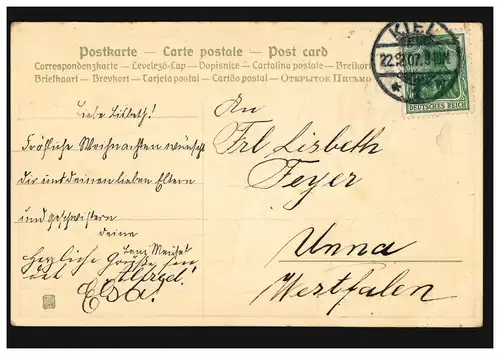 Postkarte – Carte postale – Post card
Correspondenzkarte – Levelező-Lap – Dopisnice – Cartolina postale – Brefkort
Briefkaart – Brevkort – Tarjeta postal – Cartão postal – Открытое Письмо
KIEL
22.12.07.
DEUTSCHES REICH
Liebe Lisbeth!
Fröhliche Weihnachten wünscht
dir und deinen lieben Eltern
und geschwistern
deine
Elsa!
herzliche Grüße
An
Frl. Lisbeth
Feyer
Unna
Westfalen